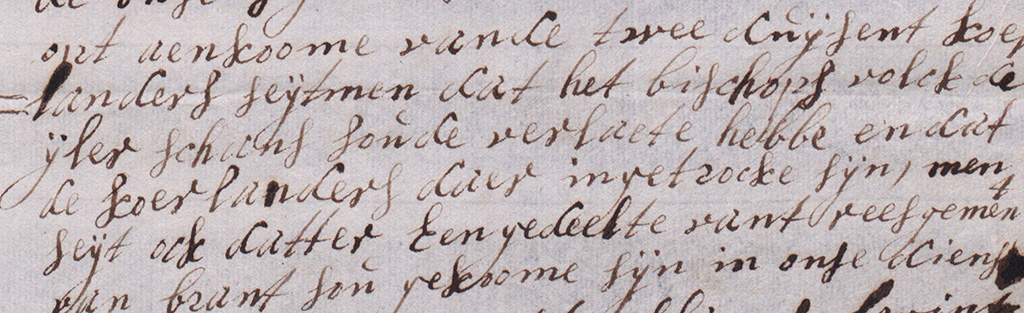 opt aenkoome vande twee duÿsent koer
= landers seÿtmen dat het bisschops volck de
ÿler schans soude verlaete hebbe en dat
de koerlanders daer ingetrocke sÿn, men
seÿt ock datter Een gedeelte vant reesgement
van brant sou gekoome sÿn in onse dienst